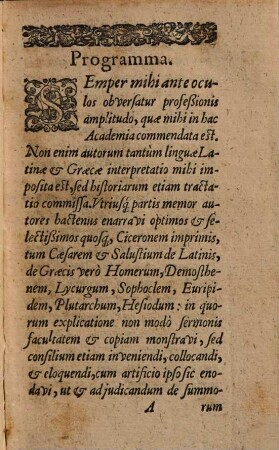 Programma.
SEmper mihi ante ocu-
los obversatur profeßionis
amplitudo, quæ mihi in hac
Academia commendata est.
Non enim autorum tantùm linguæ La-
tinæ & Græcæ interpretatio mihi im-
posita est, sed historiarum etiam tracta-
tio commissa. Vtriusq́; partis memor au-
tores hactenus enarravi optimos & se-
lectißimos quosq́;, Ciceronem imprimis,
tum Cæsarem & Salustium de Latinis,
de Græcis verò Homerum, Demosthe-
nem, Lycurgum, Sophoclem, Euripi-
dem, Plutarchum, Hesiodum: in quo-
rum explicatione non modò sermonis
facultatem & copiam monstravi, sed
consilium etiam inveniendi, collocandi,
& eloquendi, cum artificio ipso sic eno-
davi, ut & ad judicandum de summo-
A rum